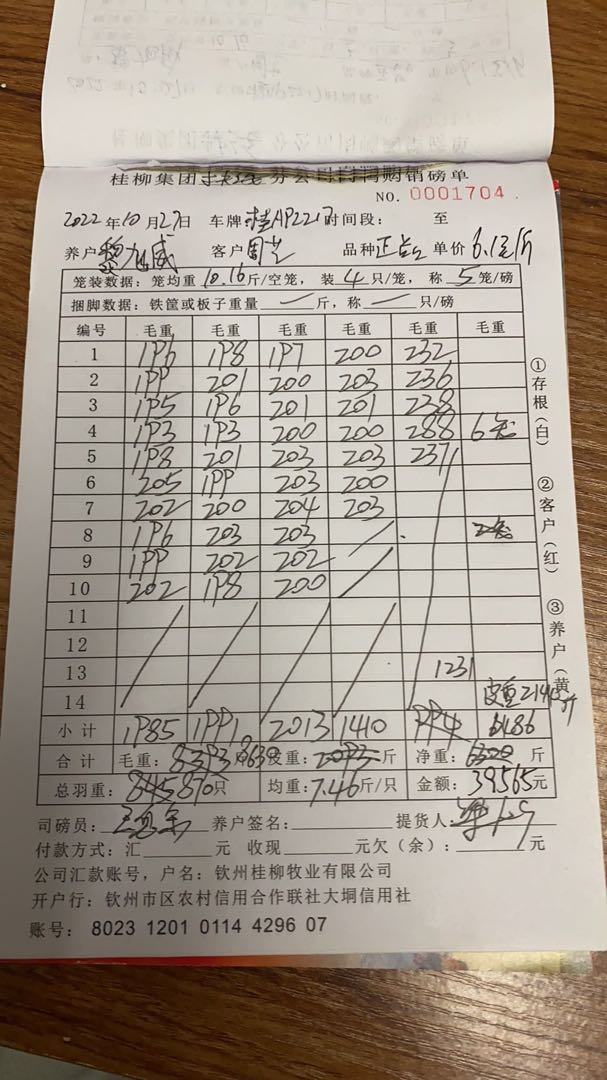 桂柳集团分公司合同购销磅单
NO. 0001704
2022年10月27日 车牌桂AP2217时间段: 至
养户黎旭威 客户周芝 品种正点2 单价6.1元/斤
笼装数据:笼均重10.16斤/空笼,装4只/笼,称5笼/磅
捆脚数据:铁筐或板子重量 / 斤,称 / 只/磅
编号 毛重 毛重 毛重 毛重 毛重 毛重
1 196 198 197 200 232
2 199 201 200 203 236
3 195 196 201 201 238
4 193 193 200 200 288 6笼
5 198 201 203 203 237
6 205 199 203 200
7 202 200 204 203
8 196 203 203
9 199 202 202
10 202 198 200
11
12
13 1231
14 皮重214斤
小计 1985 1991 2013 1410 994 6486
合计 毛重:8393 8630 皮重:2093斤 净重:6300斤
总羽重:845 870只 均重:7.46斤/只 金额:39565元
司磅员: 养户签名: 提货人:
付款方式:汇 元 收现 元欠(余): 元
公司汇款账号,户名:钦州桂柳牧业有限公司
开户行:钦州市区农村信用合作联社大垌信用社
账号:8023 1201 0114 4296 07
①存根(白)
②客户(红)
③养户(黄